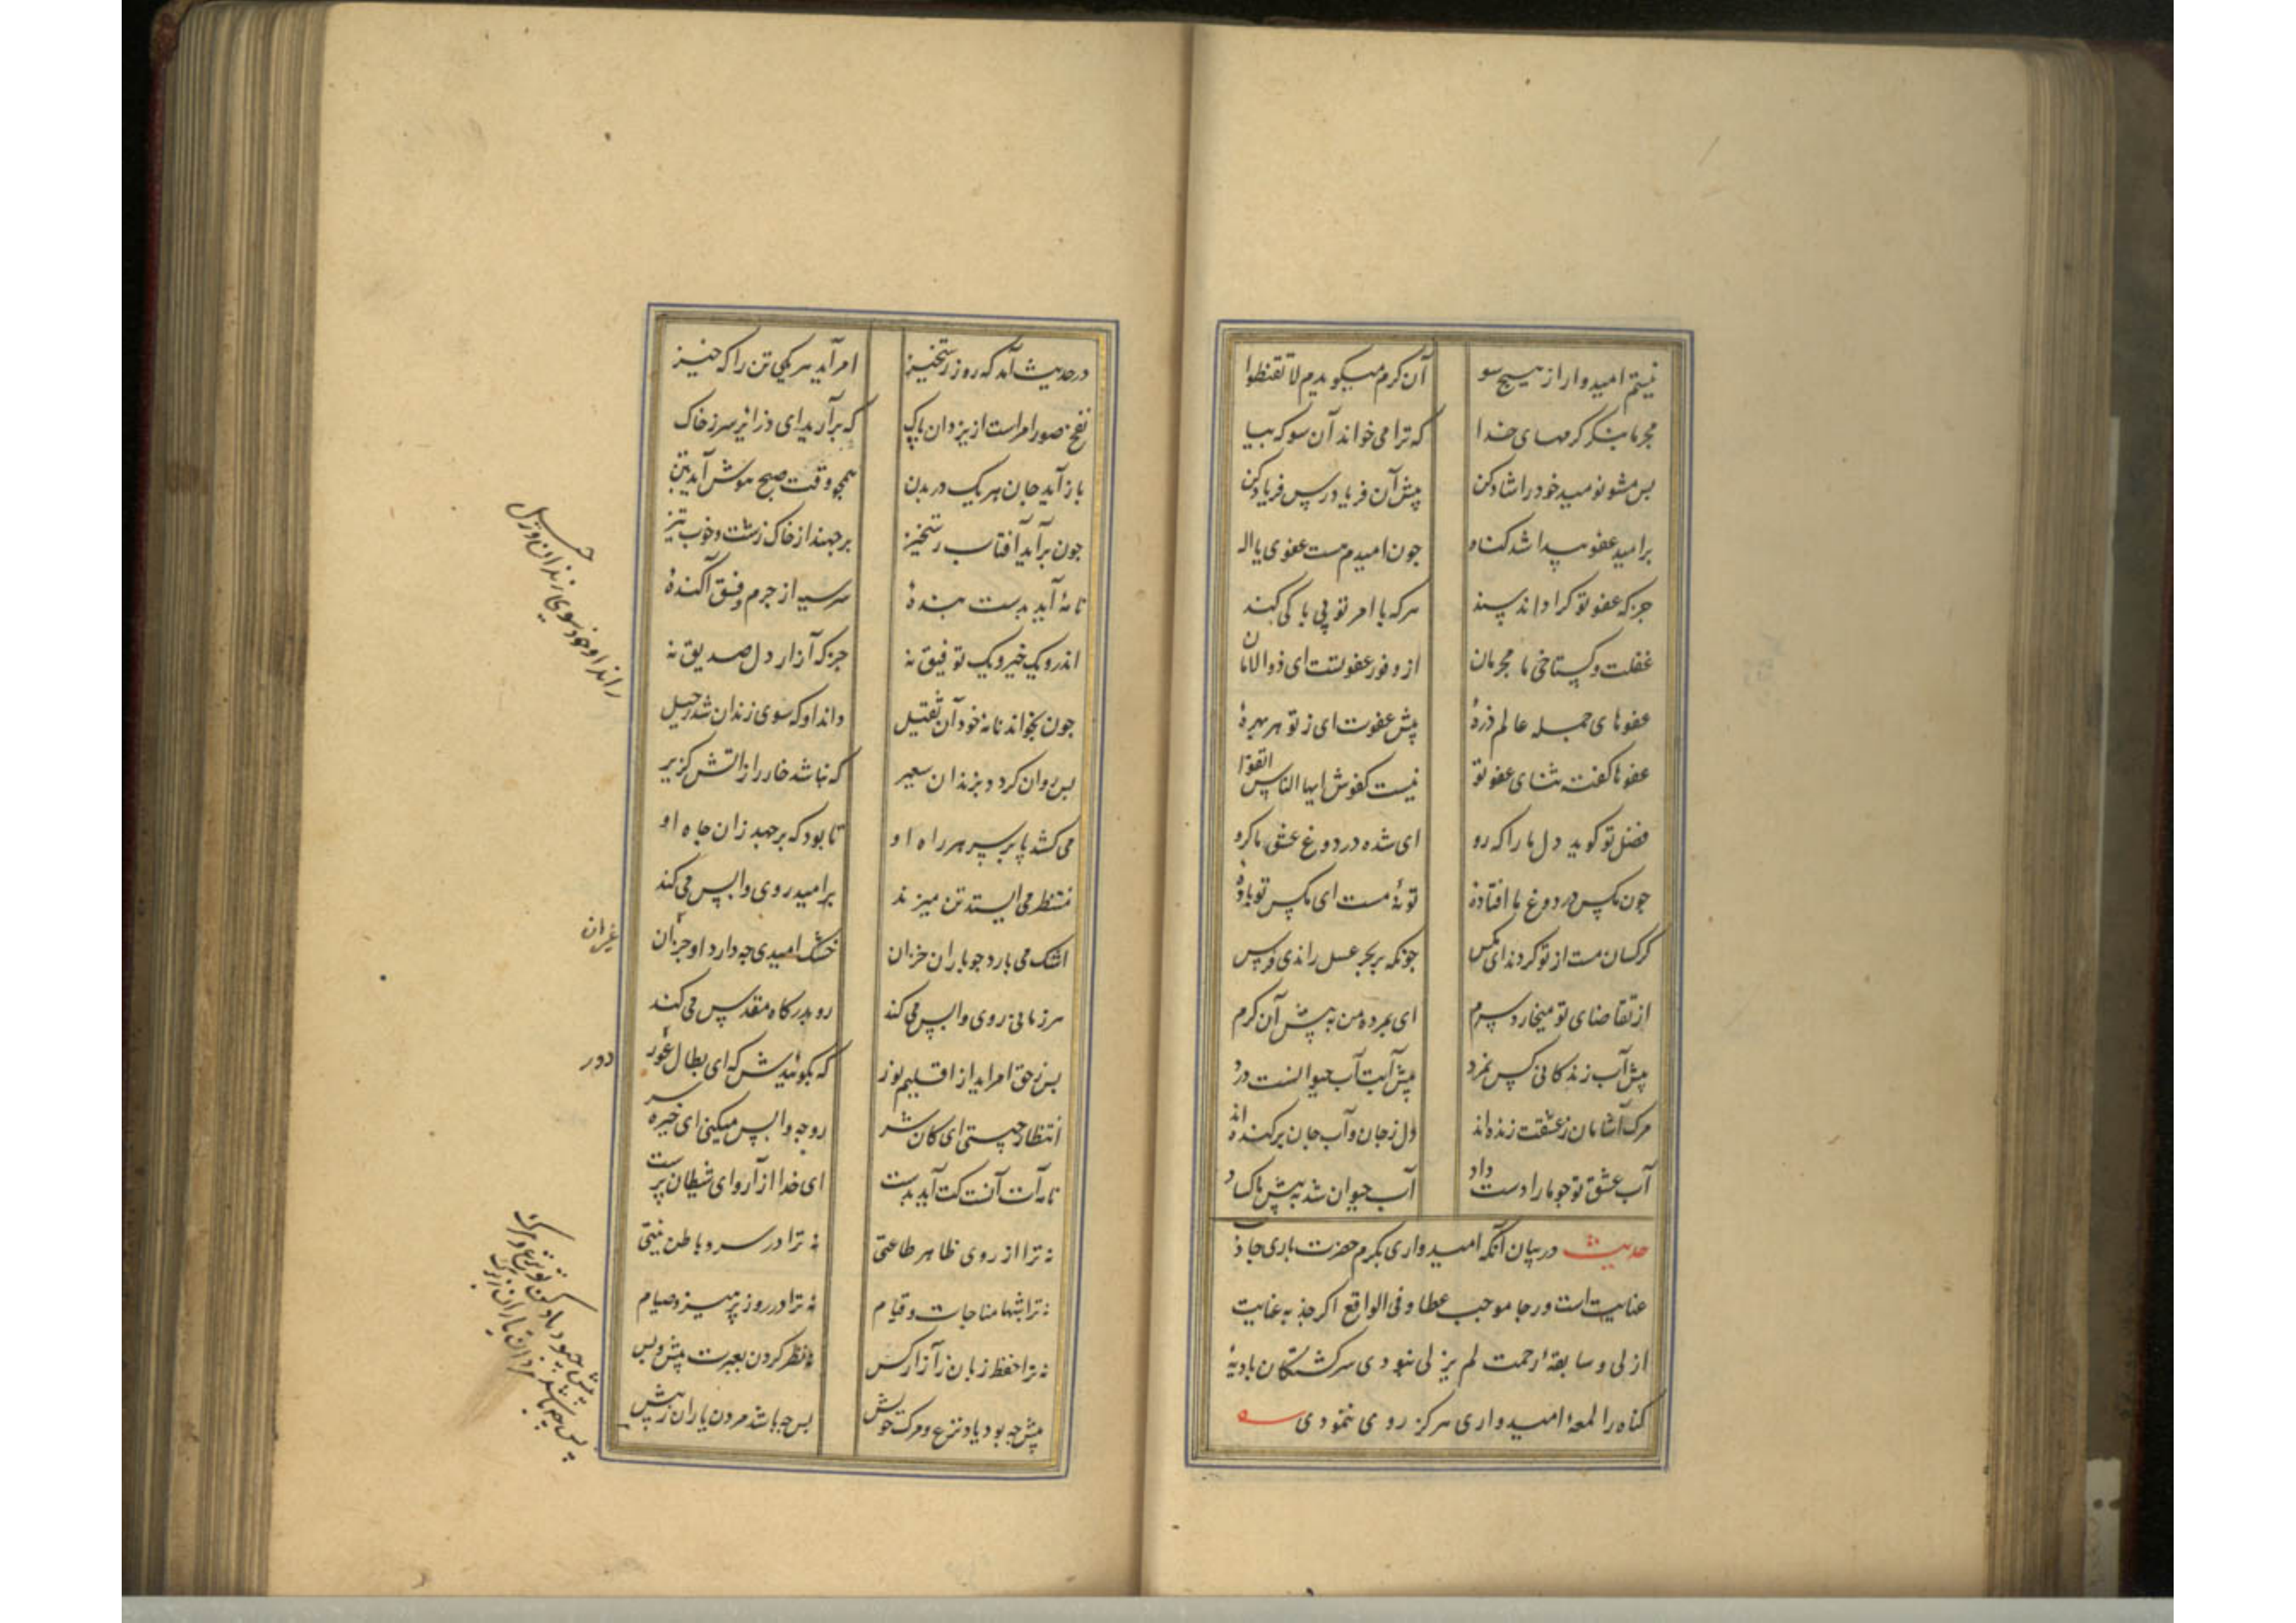 نیستم امیدوار از هیچ سو آن کرم میکویدم لا تقنطوا
مجرما بنکر کرمهای خدا که ترا می خواند آن سو که بیا
بس مشو نومید خود را شاد کن پیش آن فریادرس فریاد کن
بر امید عفو پیدا شد کناه چون امیدم هست عفوی یا اله
جز که عفو تو کرا داند پسند هرکه با امر تو بی باکی کند
غفلت و کستاخی ما مجرمان از وفور عفو تست ای ذو الامان
عفوهای جمله عالم ذرهٔ پیش عفوت ای ز تو هر بهرهٔ
عفوها کفته ثنای عفو تو نیست کفوش ایها الناس اتقوا
فضل تو کوید دل ما را که رو ای شده در دوغ عشق ما کرو
چون مکس در دوغ ما افتادهٔ تو نهٔ مست ای مکس تو بادهٔ
کرکسان مست از تو کردند ای مکس چونکه بر بحر عسل راندی فرس
از تقاضای تو میخارد سرم ای بمرده من به پیش آن کرم
پیش آب زندکانی کس نمرد پیش آبت آب حیوانست درد
مرک آشامان ز عشقت زنده اند دل ز جان و آب جان برکنده اند
آب عشق تو چو ما را دست داد آب حیوان شد به پیش ما کساد
حدیث در بیان آنکه امیدواری بکرم حضرت باری جاذب
عنایت است و رجا موجب عطا و فی الواقع اکر جذبه عنایت
ازلی و سابقهٔ رحمت لم یزلی نبودی سرکشتکان بادیهٔ
کناه را لمعهٔ امیدواری هرکز روی ننمودی
در حدیث آمد که روز رستخیز امر آید هر یکی تن را که خیز
نفخ صور امر است از یزدان پاک که برآرید ای ذرایر سر ز خاک
باز آید جان هر یک در بدن همچو وقت صبح هوش آید بتن
چون برآید آفتاب رستخیز بر جهند از خاک زشت و خوب تیز
نامهٔ آید بدست بندهٔ سر سیه از جرم و فسق آکندهٔ
اندرو یک خیر و یک توفیق نه جز که آزار دل صدیق نه
چون بخواند نامه خود آن ثقیل داند او که سوی زندان شد رحیل
بس روان کردد بزندان سعیر که نباشد خار را ز اتش کزیر
می کشد پا بر سر هر راه او تا بود که برجهد زان چاه او
منتظر می ایستد تن میزند بر امید روی وابس می کند
اشک می بارد چو باران خزان خشک امیدی چه دارد او جز آن
هر زمانی روی وابس می کند رو بدرکاه مقدس می کند
بس ز حق امر آید از اقلیم نور که بکوئیدش که ای بطال عور
انتظار چیستی ای کان شر رو چه وابس میکنی ای خیره سر
نامه ات آنست کت آید بدست ای خدا آزار و ای شیطان پرست
نه ترا از روی ظاهر طاعتی نه ترا در سر و باطن نیتی
نه ترا شبها مناجات و قیام نه ترا در روز پرهیز و صیام
نه ترا حفظ زبان ز آزار کس نه نظر کردن بعبرت پیش و بس
پیش چه بود یاد نزع و مرک خویش بس چه باشد مردن یاران ز پیش
راند او خود سوی زندان رحیل
عریان
دور
پیش چبود یاد کن تو نزع و مرک
پس چه باشد مردن یاران